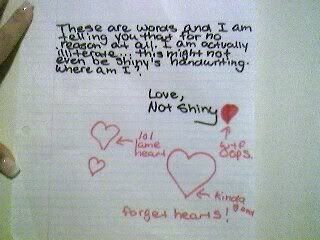 These are words and I am
telling you that for no
reason at all. I am actually
illiterate... this might not
even be Shiny's handwriting.
Where am I?
Love,
Not Shiny
lol
lame
heart
wtf
oops.
kinda
good
forget hearts!